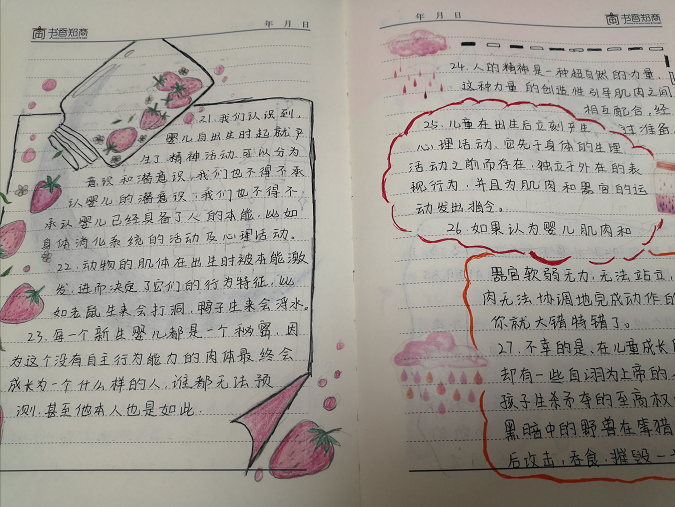 书香知商
年 月 日
21.我们认识到,
婴儿自出生时起就产
生了精神活动可以分为
意识和潜意识,我们也不得不承
认婴儿的潜意识,我们也不得不
承认婴儿已经具备了人的本能,比如
身体消化系统的活动及心理活动。
22.动物的肌体在出生时被本能激
发,进而决定了它们的行为特征,比
如老鼠生来会打洞,鸭子生来会浮水。
23.每一个新生婴儿都是一个秘密,因
为这个没有自主行为能力的肉体最终会
成长为一个什么样的人,谁都无法预
测.甚至他本人也是如此.
年 月 日
书香知商
24.人的精神是一种超自然的力量,
这种力量的创造性引导肌肉之间
相互配合,经
25.儿童在出生后立刻产生
过准备
心理活动.它先于身体的生理
活动之前而存在.独立于外在的表
现行为.并且为肌肉和器官的运
动发出指令。
26.如果认为婴儿肌肉和
器官软弱无力.无法站立,
肉无法协调地完成动作的
你就大错特错了。
27.不幸的是,在儿童成长
却有一些自诩为上帝的
孩子生杀予夺的至高权
黑暗中的野兽在窜猎
后攻击,吞食.摧毁一